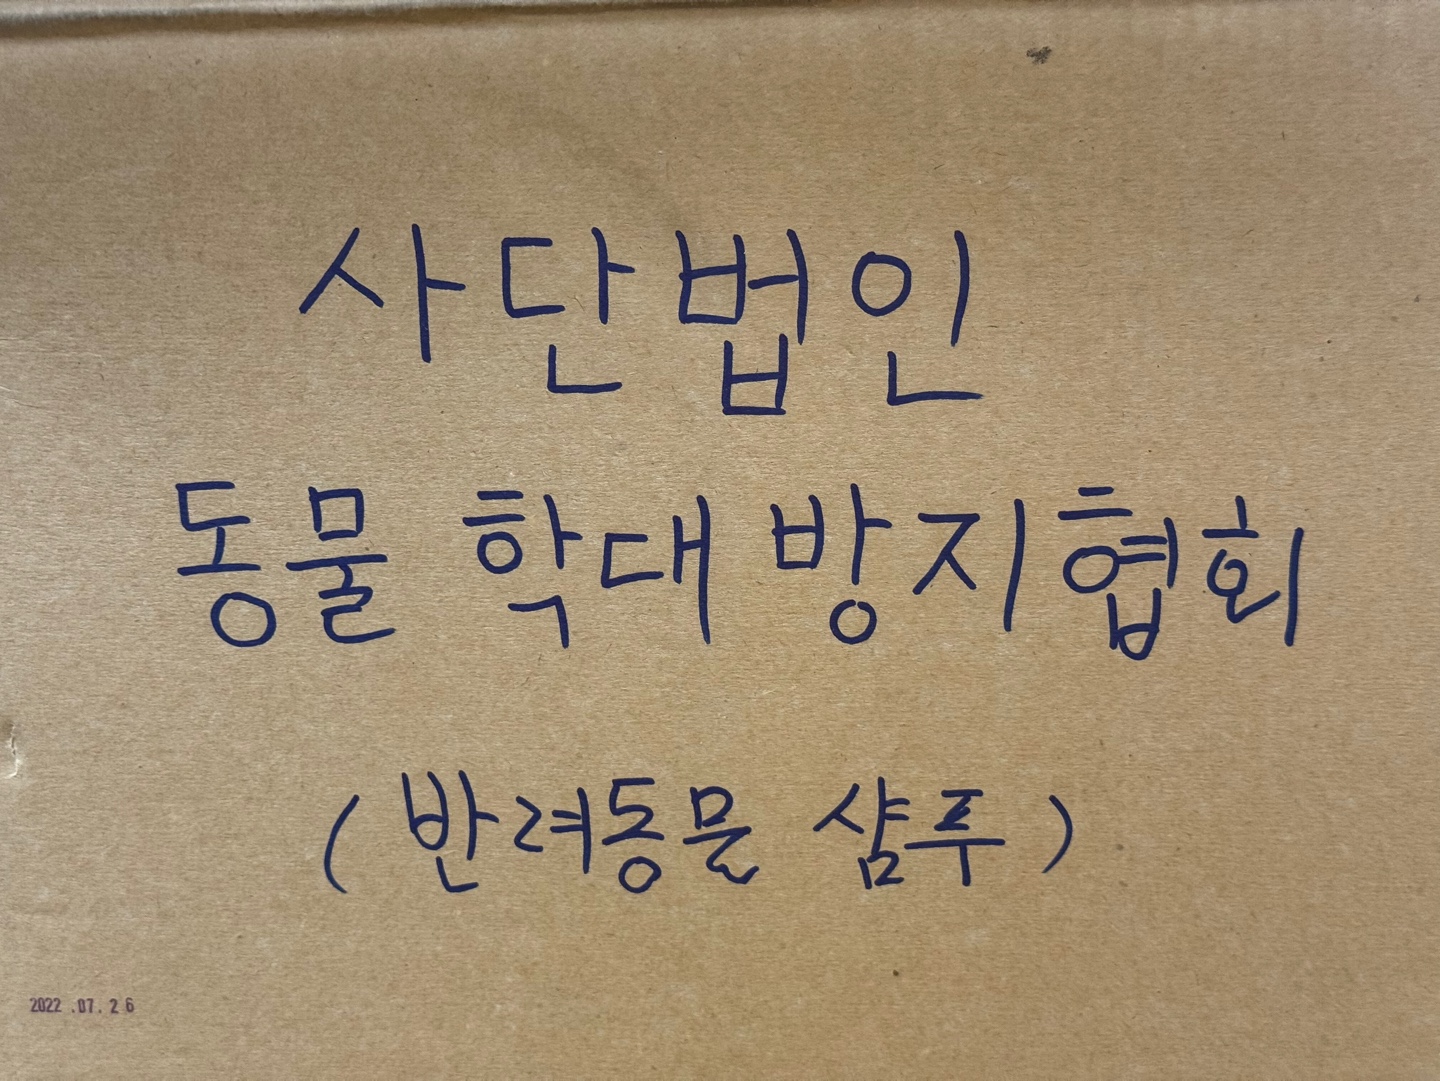 사단법인
동물 학대 방지협회
(반려동물 샴푸)
2022.07.26